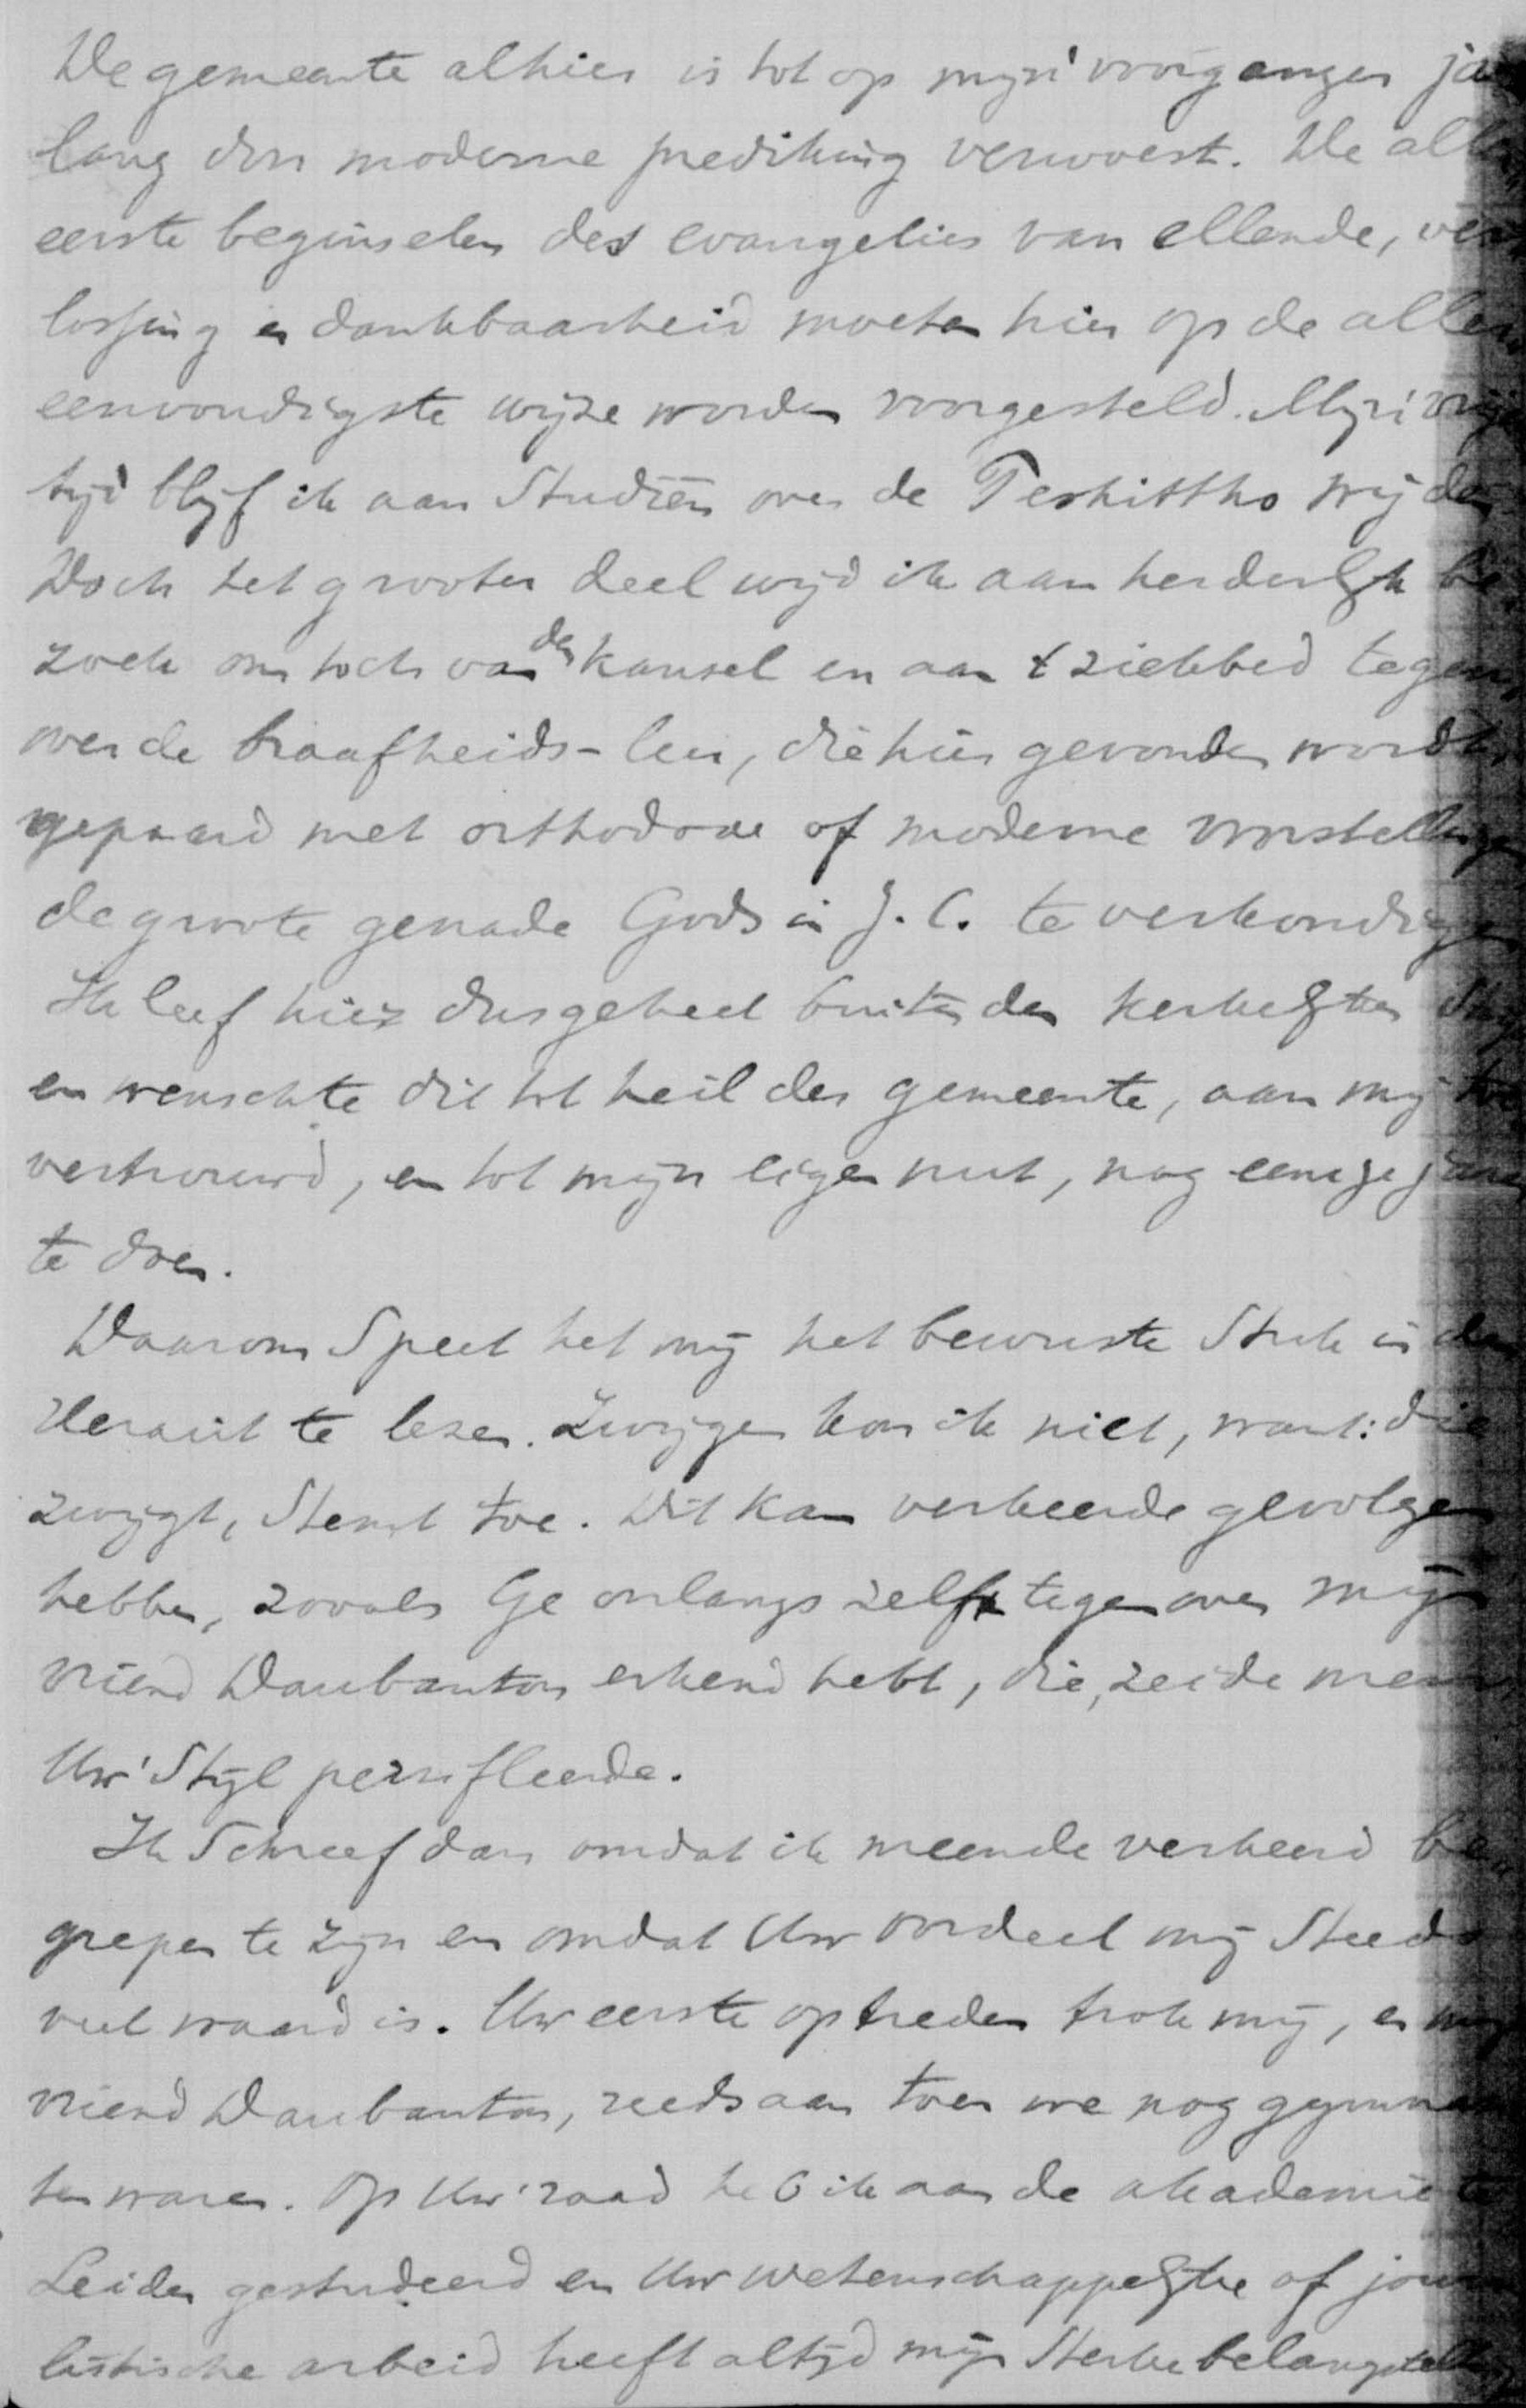 De gemeente alhier is tot op mijn voorganger ja
lang door moderne prediking verwoest. De aller
eerste beginselen des evangelies van ellende, ver
lossing en dankbaarheid moeten hier op de aller
eenvoudigste wijze worden voorgesteld. Mijn vrije
tijd blijf ik aan Studiën over de Peshittho wijden
Doch het grooter deel wijd ik aan herderlijk be
zoek om toch van den kansel en aan t ziekbed tegen
over de braafheids-leer, die hier gevonden wordt
gepaard met orthodoxe of moderne voorstellingen
de groote genade Gods in J. C. te verkondigen
Ik leef hier dus geheel buiten den kerkelijken
en wenschte dit tot heil der gemeente, aan mij toe
vertrouwd, en tot mijn eigen nut, nog eenige jaren
te doen.
Daarom Speet het mij het bewuste Stuk in den
Heraut te lezen. Zwijgen kon ik niet, want: die
zwijgt, Stemt toe. Dit kan verkeerde gevolgen
hebben, zooals Ge onlangs zelf tegenover mijn
vriend Daubanton erkend hebt, die, zeide men
Uw Stijl persifleerde.
Ik Schreef dan omdat ik meende verkeerd be
grepen te zijn en omdat Uw oordeel mij Steeds
veel waard is. Uw eerste optreden trok mij, en mijn
vriend Daubanton, reeds aan toen we nog gymnasias
ten waren. Op Uw raad heb ik aan de akademie te
Leiden gestudeerd en Uw wetenschappelijke of journa
listische arbeid heeft altijd mijn Sterke belangstelling